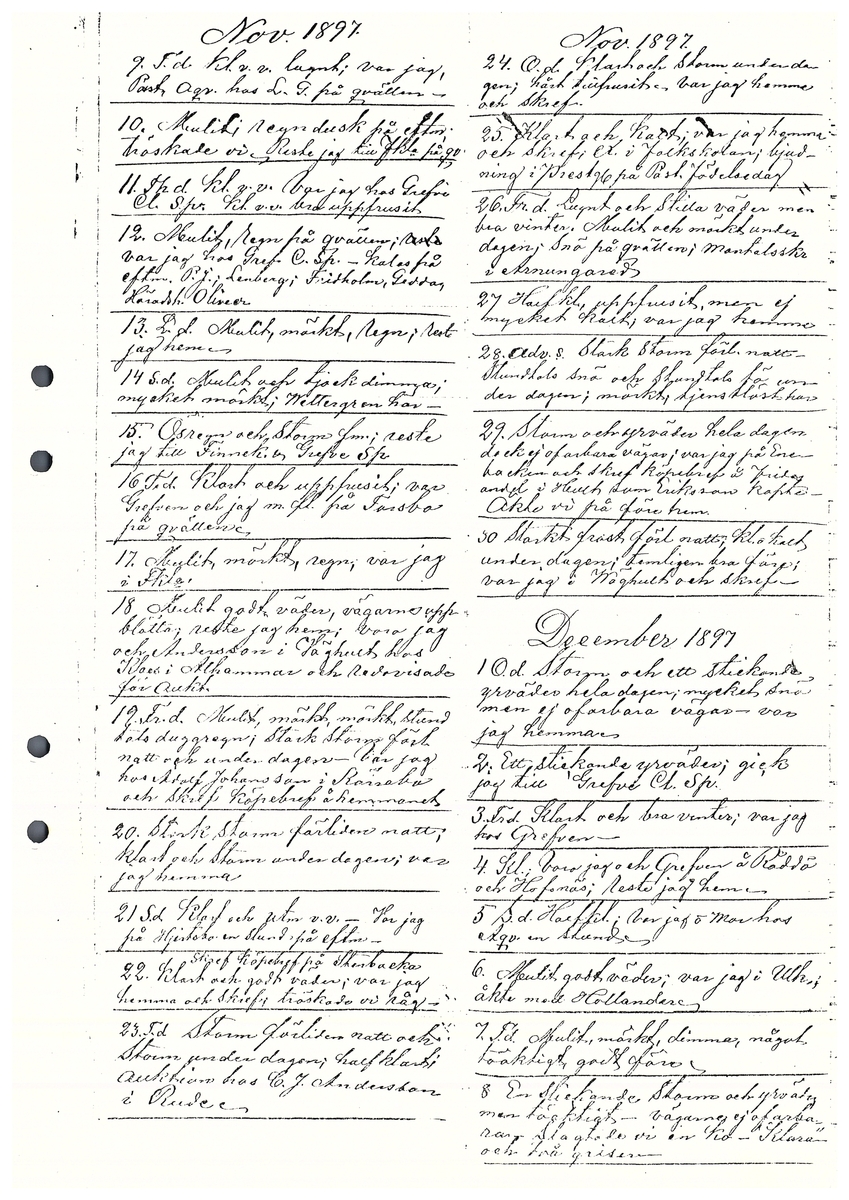 Nov. 1897.
9. T.d. kl. v. v. lugnt; var jag,
Past. Agv. hos L. G. på qvällen —
10. Mulit; regndusk på eftm.
tröskade vi. Reste jag till Fkla på qv.
11. Tp.d. kl. v. v. Var jag hos Grefve
Cl. Sp. kl. v. v. bra uppfrusit
12. Mulit, regn på qvällen;
var jag hos Gref. C. Sp. — kalas på
eftm. P. J.; Lenberg; Fridholm, Geddag
Häradsh. Oliveer
13. L. d. Mulit, mörkt, regn; reste
jag hem
14 S.d. Mulit och tjock dimma;
mycket mörkt; Wettergren här —
15. Ösregn och Storm fm.; reste
jag till Finnek. Grefve Sp
16 T.d. Klart och uppfrusit; var
Grefven och jag m. fl. på Torsbo
på qvällen
17. Mulit, mörkt, regn; var jag
i Fkla.
18 Mulit godt väder, vägarne upp
blötta; reste jag hem; voro jag
och Andersson i Väghult hos
Klaes i Alhammar och redovisade
för Aukt.
19. Fr. d. Mulit, mörkt, mörkt, stund
tals duggregn; Stark Storm förl.
natt och under dagen — Var jag
hos Adolf Johansson i
och skref köpebref å hemmanet
20. Stark Storm förliden natt;
klart och Storm under dagen; var
jag hemma
21 S.d Klart och v. v. — Var jag
på en stund på eftm —
Skref köpebref på Storbacka
22. Klart och godt väder; var jag
hemma och skref; tröskade vi råg —
23. T.d Storm förliden natt och
Storm under dagen; half klart;
Auktion hos C. J. Andersson
i Rude
Nov. 1897.
24. O. d. Klart och Storm under da-
gen; hårt tillfrusit. var jag hemma
och skref.
25. Klart och kallt; var jag hemma
och skref; Ex. i Folkskolan; bjud-
ning i Prestg. på Past. födelsedag
26. Fr. d. Lugnt och Stilla väder men
bra vinter. Mulit och mörkt under
dagen; snö på qvällen; Mantalsskr
i Arnungared
27 Half kl., uppfrusit, men ej
mycket kallt; var jag hemma
28. Adv. S. Stark Storm förl. natt —
Stundtals snö och Stundtals tö un-
der dagen; mörkt, tjenstlöst här
29. Storm och yrväder hela dagen
dock ej ofarbara vägar; var jag på Ene-
backen och skref köpebref å
andel i Hult som Eriksson köpte —
Åkte vi på före hem.
30 Starkt frost förl. natt; kl. o kallt
under dagen; temligen bra före;
var jag i Wäghult och skref —
December 1897
1 O.d. Storm och ett stickande
yrväder hela dagen; mycket snö
men ej ofarbara vägar — var
jag hemma
2. Ett stickande yrväder; gick
jag till Grefve Cl. Sp.
3. Frd. Klart och bra vinter; var jag
hos Grefven —
4. Kl.; Voro jag och Grefven å Räddö
och Hofsnäs; reste jag hem
5 S.d. Half kl.; Var jag o Mor hos
en stund
6. Mulit godt väder; var jag i Ulh.;
åkte med Hollander
7. T.d. Mulit, mörkt, dimma, något
töaktigt, godt före
8 En stickande Storm och yrväder
men töaktigt — vägarne ej ofarba-
ra; Slagtade vi en ko — "Klara"
och två grisar —